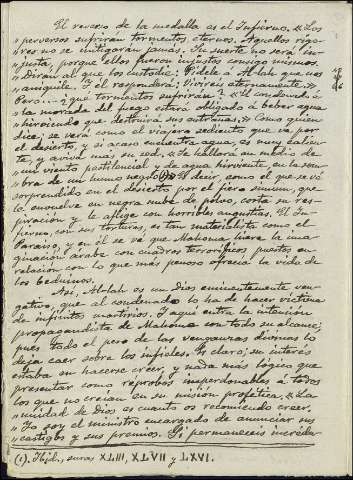 El reverso de la medalla es el Infierno. «Los
"perversos sufrirán tormentos eternos. Aquellos rigo-
"res no se mitigarán jamás. Su suerte no será in-
"justa, porque ellos fueron injustos consigo mismos.
"Dirán al que los custodie: Pídele á Al-lah que nos
"aniquile. Y él responderá: Viviréis eternamente."
Pero... ¿qué tormentos sufrirán? «El condenado á
"la morada del fuego estará obligado á beber agua
"hirviendo que destruirá sus entrañas.» Como quien
dice, se verá como el viajero sediento que va por
el desierto, y si acaso encuentra agua, es muy calien-
te, y aviva más su sed. «Se hallará en medio de
"un viento pestilencial y de agua hirviente, en la som-
"bra de un humo negro (1).» Es decir, como el que se vé
sorprendido en el desierto por el fiero simun, que
lo envuelve en negra nube de polvo, corta su res-
piración y le aflige con horribles angustias. El In-
fierno, con sus torturas, es tan materialista como el
Paraíso, y en él se ve que Mahoma hiere la ima-
ginación árabe con cuadros terroríficos puestos en
relación con lo que más penoso ofrecía la vida de
los beduinos.
Así, Al-lah es un Dios eminentemente ven-
gativo, que al condenado lo ha de hacer víctima
de infinitos martirios. Y aquí entra la intención
propagandista de Mahoma con todo su alcance;
pues todo el peso de las venganzas divinas lo
deja caer sobre los infieles. Es claro; su interés
estaba en hacerse creer, y nada más lógico que
presentar como réprobos imperdonables á todos
los que no creían en su misión profética. «La
"unidad de Dios es cuanto os recomiendo creer.
"Yo soy el ministro encargado de anunciar sus
"castigos y sus premios. Si permanecéis incrédu-
(1). Ibid., suras XLIII, XLVII y LVI.